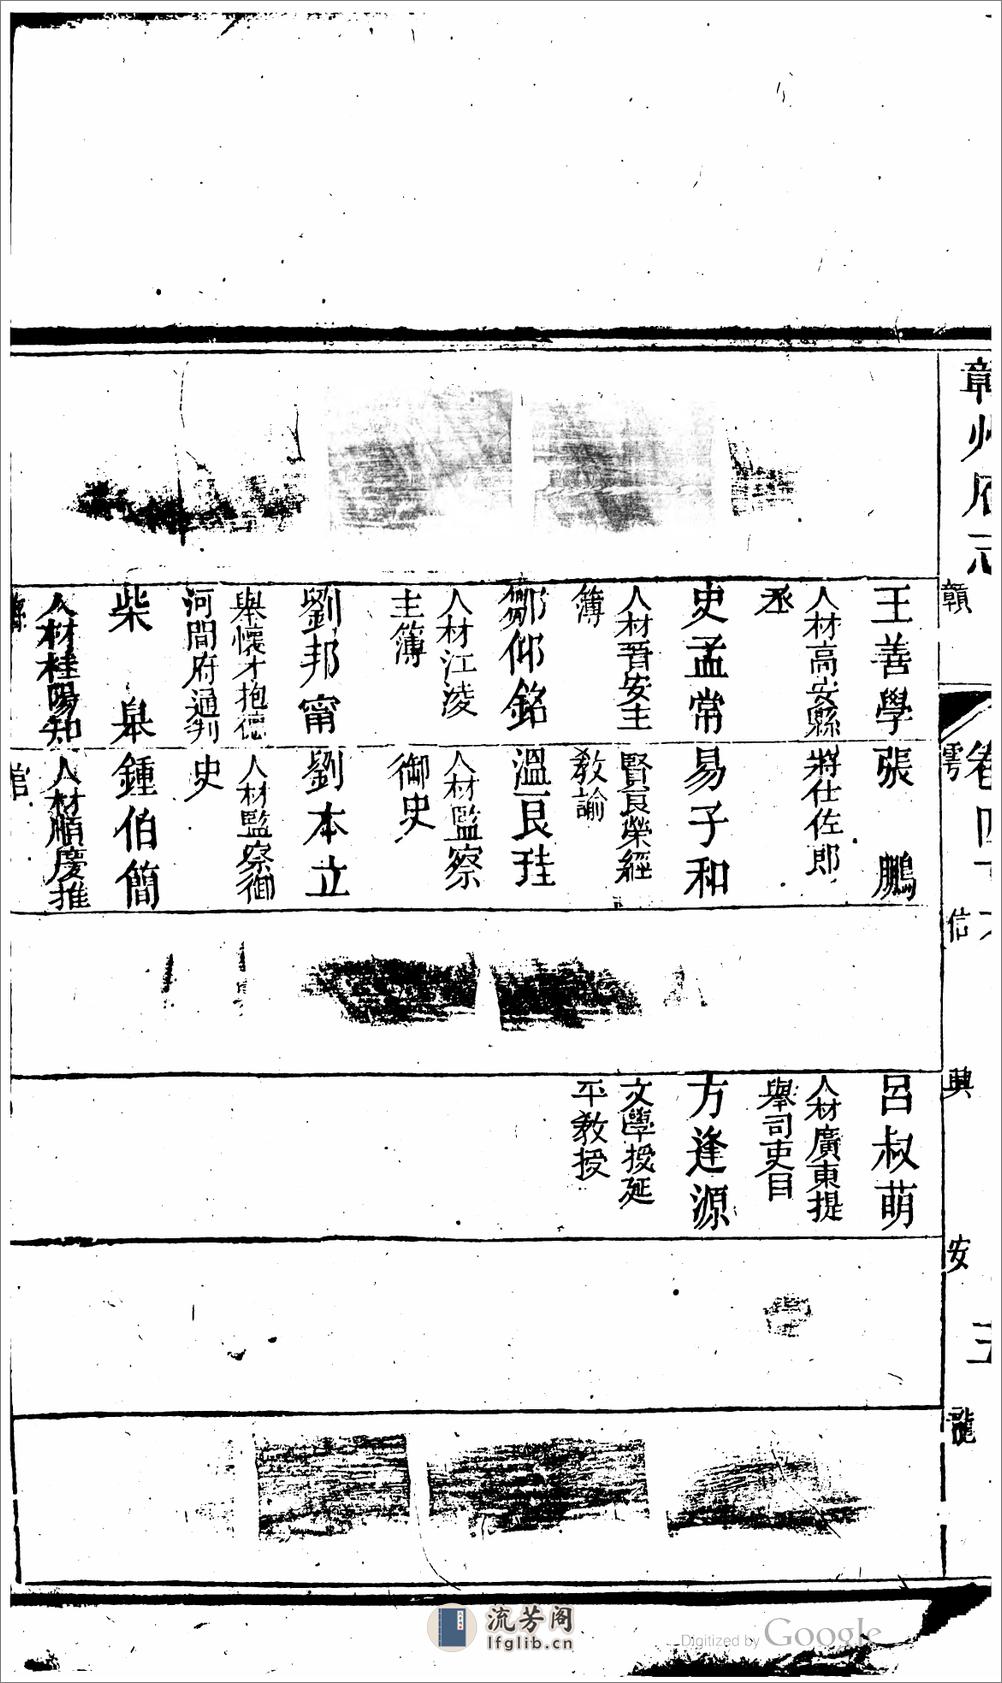 贛州府志
卷四十
贛
雩
信
興
安
龍
王善學
人材高安縣
丞
史孟常
人材晋安主
簿
鄒仰銘
人材江淩
主簿
劉邦甯
舉懷才抱德
河間府通判
柴 㮣
人材桂陽知
縣
張 鵬
將仕佐郎
易子和
賢良榮經
教諭
溫良珪
人材監察
御史
劉本立
人材監察御
史
鍾伯簡
人材順慶推
官
呂叔萌
人材廣東提
舉司吏目
方逢源
文學授延
平教授
流芳阁
lfglib.cn
Digitized by Google